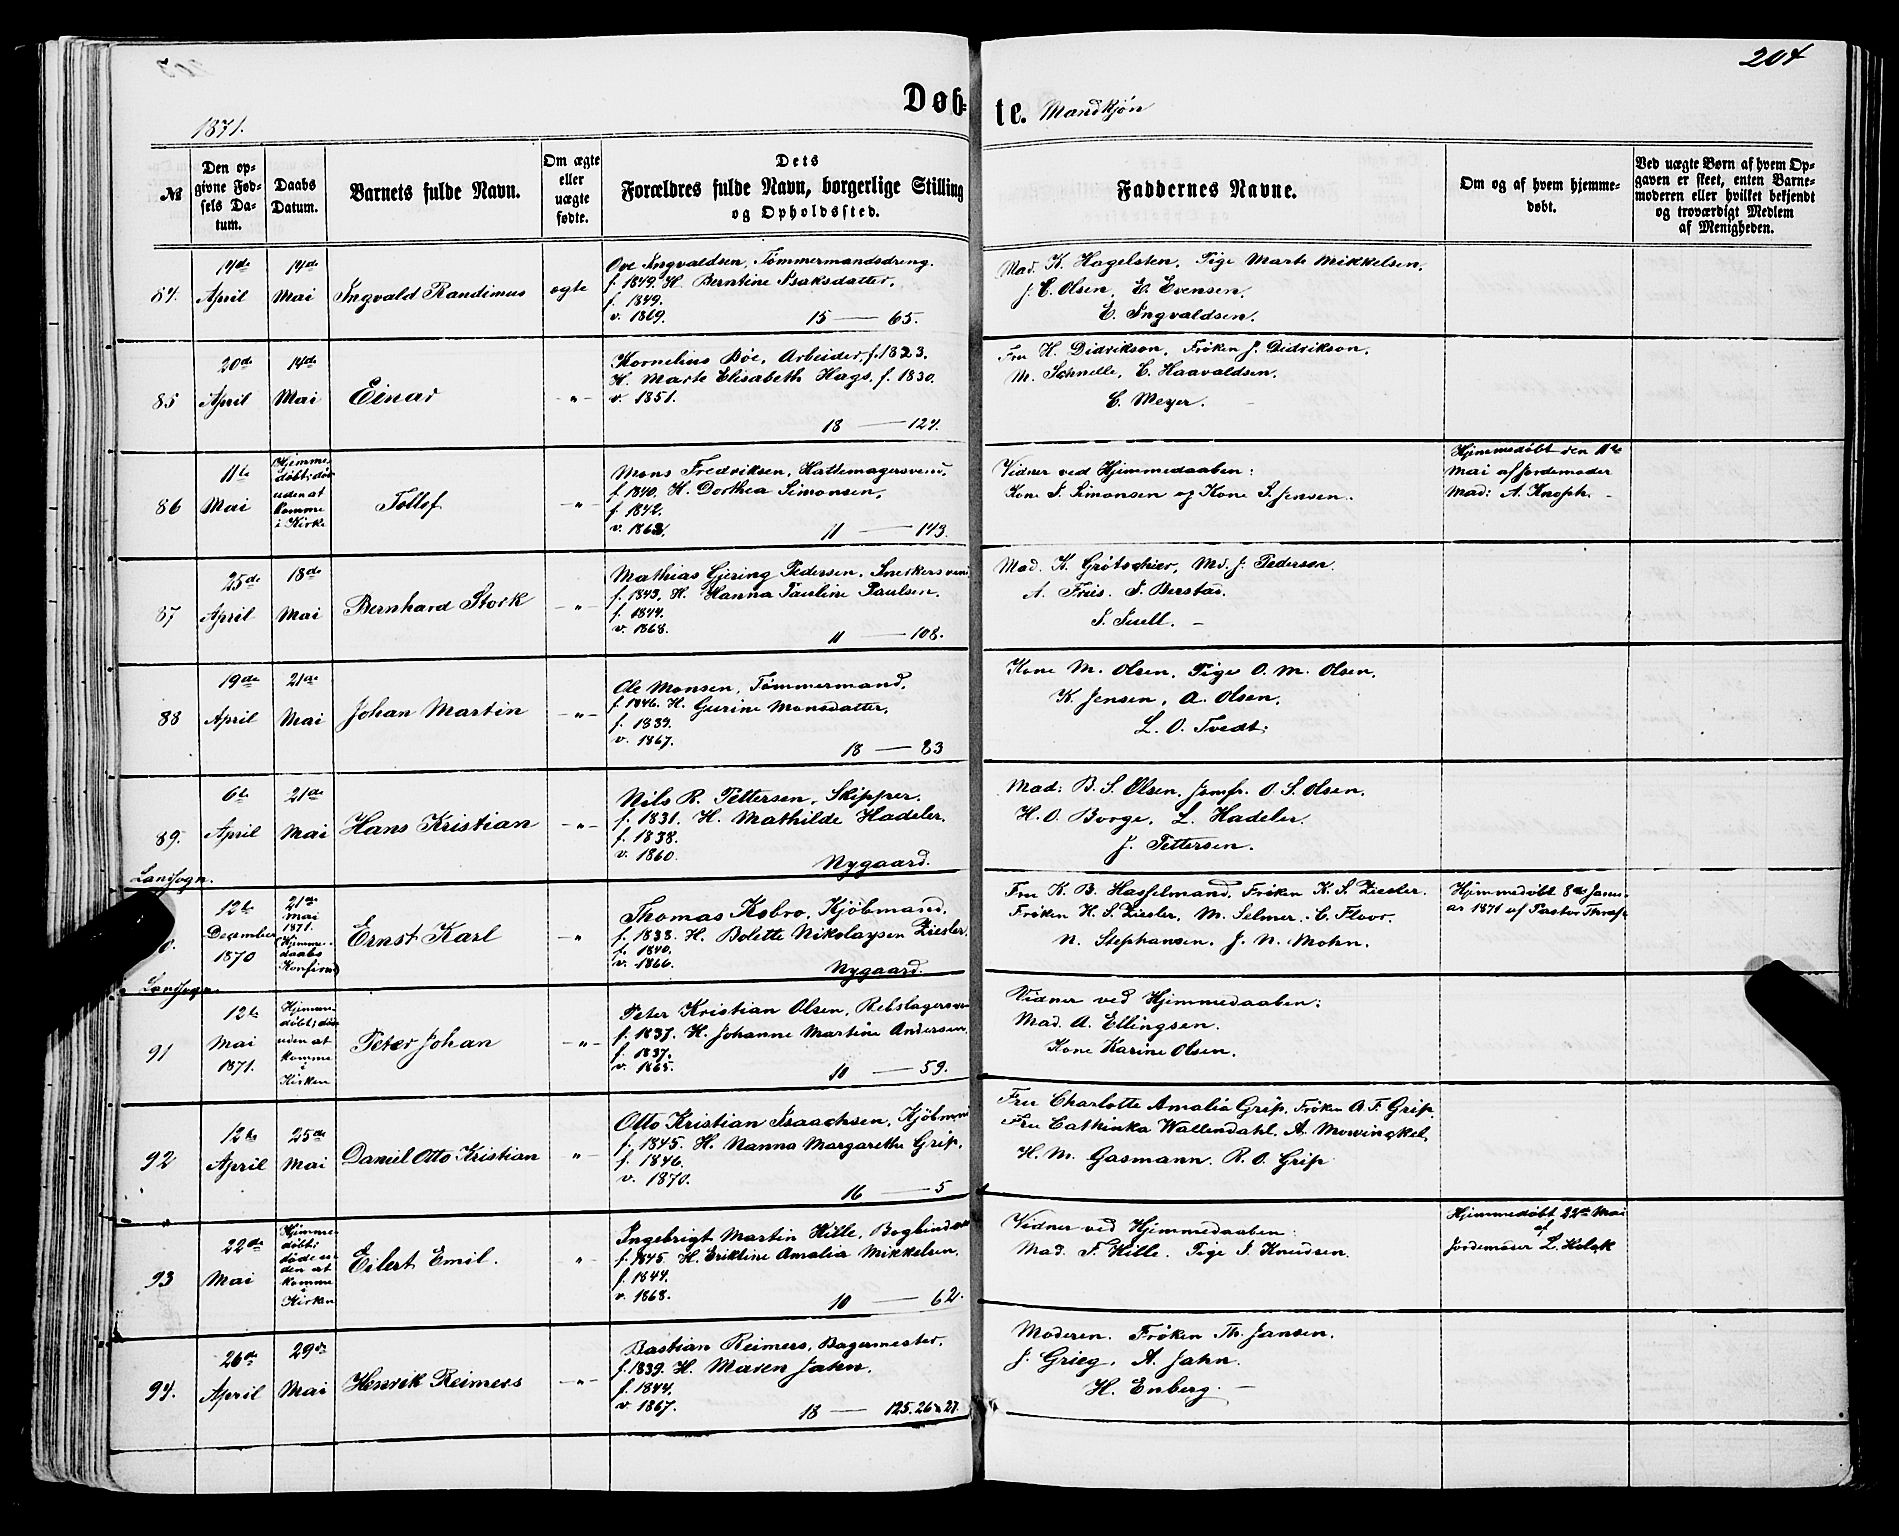 204
Døbte. Mandkjøn
1871.
№
Den op-
givne Fød-
sels Da-
tum.
Daabs
Datum.
Barnets fulde Navn.
Om ægte
eller
uægte
fødte.
Dets
Forældres fulde Navn, borgerlige Stilling
og Opholdssted.
Faddernes Navne.
Om og af hvem hjemme-
døbt.
Ved uægte Børn af hvem Op-
gaven er skeet, enten Barne-
moderen eller hvilket bekjendt
og troværdigt Medlem
af Menigheden.
84.
14de
April
14de
Mai
Ingvald Randinius
ægte
Ove Ingvaldsen, Tømmermandsdreng.
f. 1849. H. Berntine Isaksdatter,
f. 1849.
v. 1869.
15 — 65.
Mad. K. Hagelsten, Pige Marte Mikkelsen,
J. C. Olsen, E. Evensen,
E. Ingvaldsen.
85
20de
April
14de
Mai
Einar
"
Kornelius Bøe, Arbeider, f. 1823.
H. Marte Elisabeth Hags, f. 1830.
v. 1851.
18 — 124.
Fru H. Didrikson, Frøken J. Didrikson,
M. Schnelle, C. Haavaldsen,
C. Meyer.
86
11te
Mai
Hjemme-
døbt; død
uden at
komme
i Kirke
Tollef
"
Mons Fredriksen, Hattemagersvend
f. 1840. H. Dorthea Simonsen,
f. 1842.
v. 1862.
11 — 143.
Vidner ved Hjemmedaaben:
Kone S. Simonsen og Kone S. Jensen.
Hjemmedøbt den 11te
Mai af Jordemoder
Mad: A. Knoph.
87
25de
April
18de
Mai
Bernhard Stock
"
Mathias Gjering Pedersen, Snekkersvend
f. 1843. H. Hanna Pauline Paulsen.
f. 1844.
v. 1868.
11 — 108.
Mad. K. Grøtschier, Md. J. Pedersen
A. Friis. S. Berstad.
S. Tuell.
88
19de
April
21de
Mai
Johan Martin
"
Ole Monsen, Tømmermand,
f. 1846. H. Gurine Monsdatter,
f. 1839.
v. 1867.
18 — 83
Kone M. Olsen, Pige O. M. Olsen,
K. Jensen, A. Olsen,
L. O. Tvedt.
89.
6te
April
21de
Mai
Hans Kristian
"
Nils R. Pettersen, Skipper.
f. 1831. H. Mathilde Hadeler.
f. 1838.
v. 1860.
Nygaard.
Mad: B. S. Olsen, Jomfr. O. S. Olsen,
H. O. Borge, L. Hadeler.
J. Pettersen.
Landsogn.
12te
December
1870
21de
Mai
1871.
Hjemme-
daabs
Konfirmd
Ernst Karl
"
Thomas Kobro, Kjøbmand,
f. 1833. H. Bolette Nikolaysen Ziesler,
f. 1840.
v. 1866.
Nygaard.
Fru K. B. Hasselmand, Frøken K. S. Ziesler.
Frøken H. S. Ziesler, M. Selmer, C. Floor.
N. Stephansen, J. N. Mohn.
Hjemmedøbt 8de Janu-
ar 1871 af Pastor
Landsogn.
91
12te
Mai
1871.
Hjemme-
døbt; død
uden at
komme
i
Kirken
Peter Johan
"
Peter Kristian Olsen, Rebslagersve
f. 1837. H. Johanne Martine Andersen,
f. 1837.
v. 1865.
10 — 59.
Vidner ved Hjemmedaaben:
Mad. A. Ellingsen.
Kone Karine Olsen.
92
12te
April
25de
Mai
Daniel Otto Kristian
"
Otto Kristian Isaachsen, Kjøbmnd
f. 1845. H. Nanna Margarethe Grip,
f. 1846.
v. 1870.
16 — 5
Fru Charlotte Amalia Grip, Frøken A. F. Grip,
Fru Cathinka Wallendahl, A. Mowinckel,
H. M. Gasmann. R. O. Grip
93
22de
Mai
Hjemme-
døbt;
døde u-
den at
komme
i
Kirken
Eilert Emil.
"
Ingebrigt Martin Hille, Bogbinder
f. 1845. H. Eriktine Amalia Mikkelsen.
f. 1844.
v. 1868.
10 — 62.
Vidner ved Hjemmedaaben:
Mad. F. Hille. Pige S. Knudsen.
Hjemmedøbt 22de Mai
af
Jordemoder L. Holck
94.
26de
April
29de
Mai
Henrik Reimers
"
Bastian Reimers, Bagermester,
f. 1839. H. Maren Jahn,
f. 1844.
v. 1867.
18 — 125.26 & 27.
Moderen. Frøken Th. Jansen.
J. Grieg, A. Jahn.
H. Enberg.